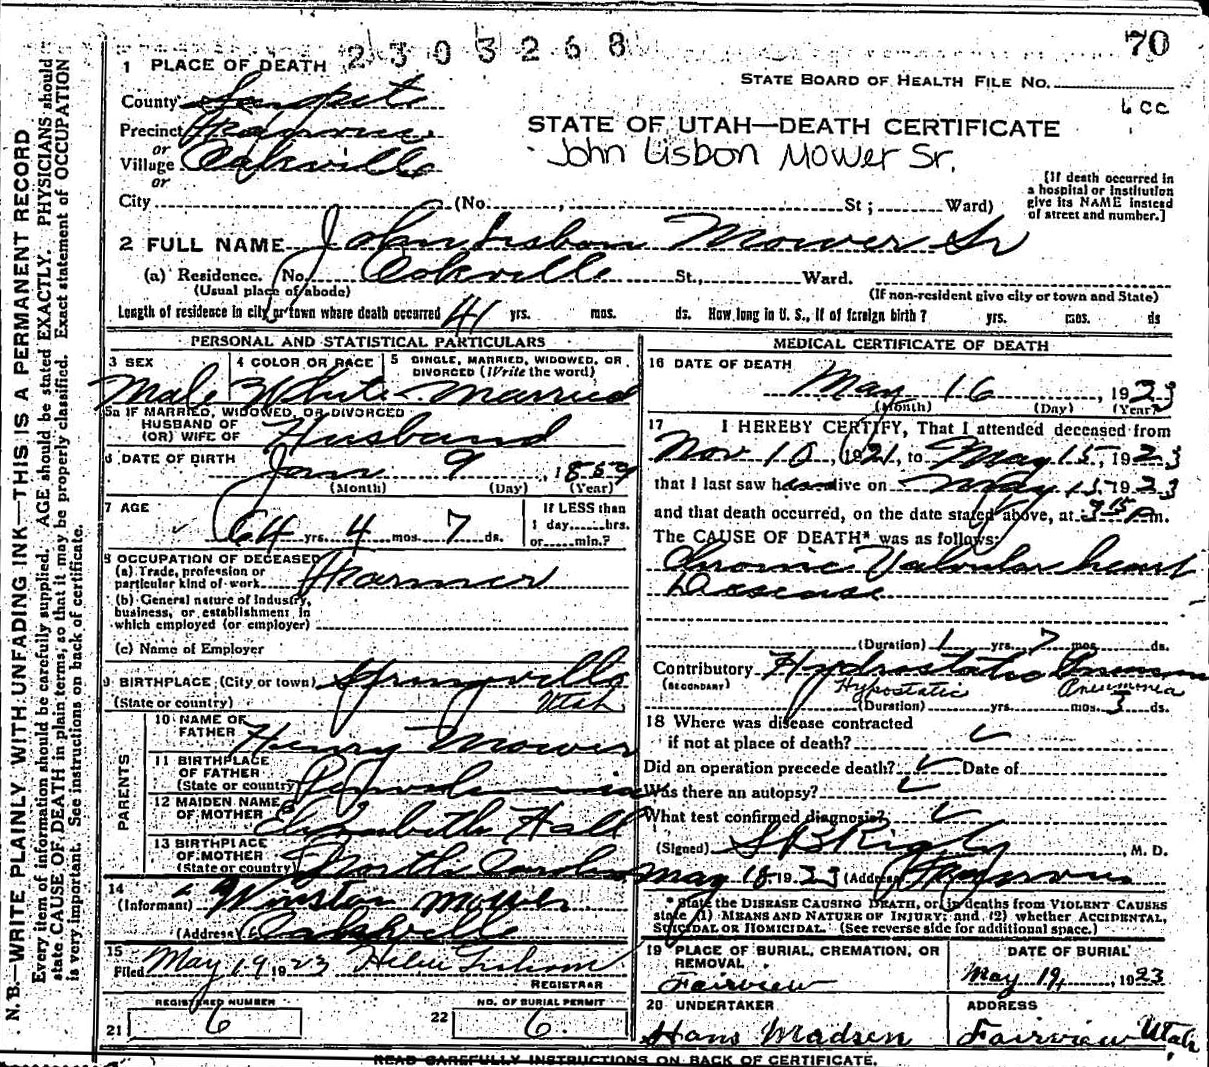 2303268
70
1 PLACE OF DEATH
STATE BOARD OF HEALTH FILE NO.
County Sanpete
6 CC
Precinct
STATE OF UTAH—DEATH CERTIFICATE
or
John Lisbon Mower Sr.
Village Oakville
or
[If death occurred in
a hospital or institution
give its NAME instead
of street and number.]
City (No , St ; Ward)
2 FULL NAME John Lisbon Mower Sr
(a) Residence. No. Oakville St., Ward.
(Usual place of abode) (If non-resident give city or town and State)
Length of residence in city or town where death occurred 41 yrs. mos. ds. How long in U. S., if of foreign birth? yrs. mos. ds
PERSONAL AND STATISTICAL PARTICULARS
3 SEX 4 COLOR OR RACE 5 SINGLE, MARRIED, WIDOWED, OR
DIVORCED (Write the word)
Male White Married
5a IF MARRIED, WIDOWED, OR DIVORCED
HUSBAND OF
(OR) WIFE OF Husband
6 DATE OF BIRTH Jan 9, 1859
(Month) (Day) (Year)
7 AGE If LESS than
64 yrs. 4 mos. 7 ds. 1 day......hrs.
or......min.?
8 OCCUPATION OF DECEASED
(a) Trade, profession or
particular kind of work Farmer
(b) General nature of Industry,
business, or establishment in
which employed (or employer)
(c) Name of Employer
9 BIRTHPLACE (City or town) Springville
(State or country) Utah
PARENTS
10 NAME OF
FATHER Henry Mower
11 BIRTHPLACE
OF FATHER
(State or country)
12 MAIDEN NAME
OF MOTHER Elizabeth Hall
13 BIRTHPLACE
OF MOTHER
(State or country) North Carolina
14
(Informant) Winston Mower
(Address) Oakville
15
Filed May 19 1923
REGISTRAR
REGISTERED NUMBER NO. OF BURIAL PERMIT
21 6 22 6.
MEDICAL CERTIFICATE OF DEATH
16 DATE OF DEATH
May 16, 1923
(Month) (Day) (Year)
17 I HEREBY CERTIFY, That I attended deceased from
Nov 10, 1921, to May 15, 1923
that I last saw h alive on May 15 1923
and that death occurred, on the date stated above, at 3 15 m.
The CAUSE OF DEATH* was as follows:
Chronic Valvular heart
Disease
(Duration) 1 yrs. 7 mos. ds.
Contributory Hydrostatic
(SECONDARY) Hypostatic Pneumonia
(Duration) yrs. mos. 3 ds.
18 Where was disease contracted
if not at place of death?
Did an operation precede death? Date of
Was there an autopsy?
What test confirmed diagnosis?
(Signed) S B Rigby, M. D.
May 18 1923 (Address)
* State the DISEASE CAUSING DEATH, or in deaths from VIOLENT CAUSES
state (1) MEANS AND NATURE OF INJURY; and (2) whether ACCIDENTAL,
SUICIDAL OR HOMICIDAL. (See reverse side for additional space.)
19 PLACE OF BURIAL, CREMATION, OR
REMOVAL DATE OF BURIAL
Fairview May 19, 1923
20 UNDERTAKER ADDRESS
Hans Madsen Fairview Utah
READ CAREFULLY INSTRUCTIONS ON BACK OF CERTIFICATE.
N. B.—WRITE PLAINLY WITH UNFADING INK—THIS IS A PERMANENT RECORD
Every item of information should be carefully supplied. AGE should be stated EXACTLY. PHYSICIANS should
state CAUSE OF DEATH in plain terms, so that it may be properly classified. Exact statement of OCCUPATION
is very important. See instructions on back of certificate.